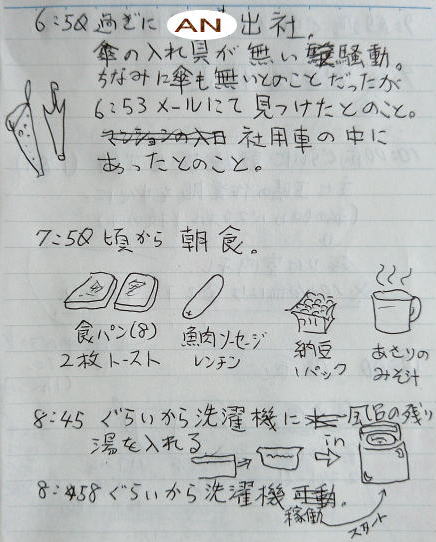 6:50 過ぎに AN 出社。
傘の入れ具が無い騒動。
ちなみに傘も無いとのことだったが
6:53 メールにて見つけたとのこと。
マンションの入口 社用車の中に
あったとのこと。
7:50 頃から 朝食。
食パン(8)
2枚トースト
魚肉ソーセージ
レンチン
納豆
1パック
あさりの
みそ汁
8:45 ぐらいから洗濯機に 風呂の残り
湯を入れる
in
8:58 ぐらいから洗濯機 稼働。
スタート